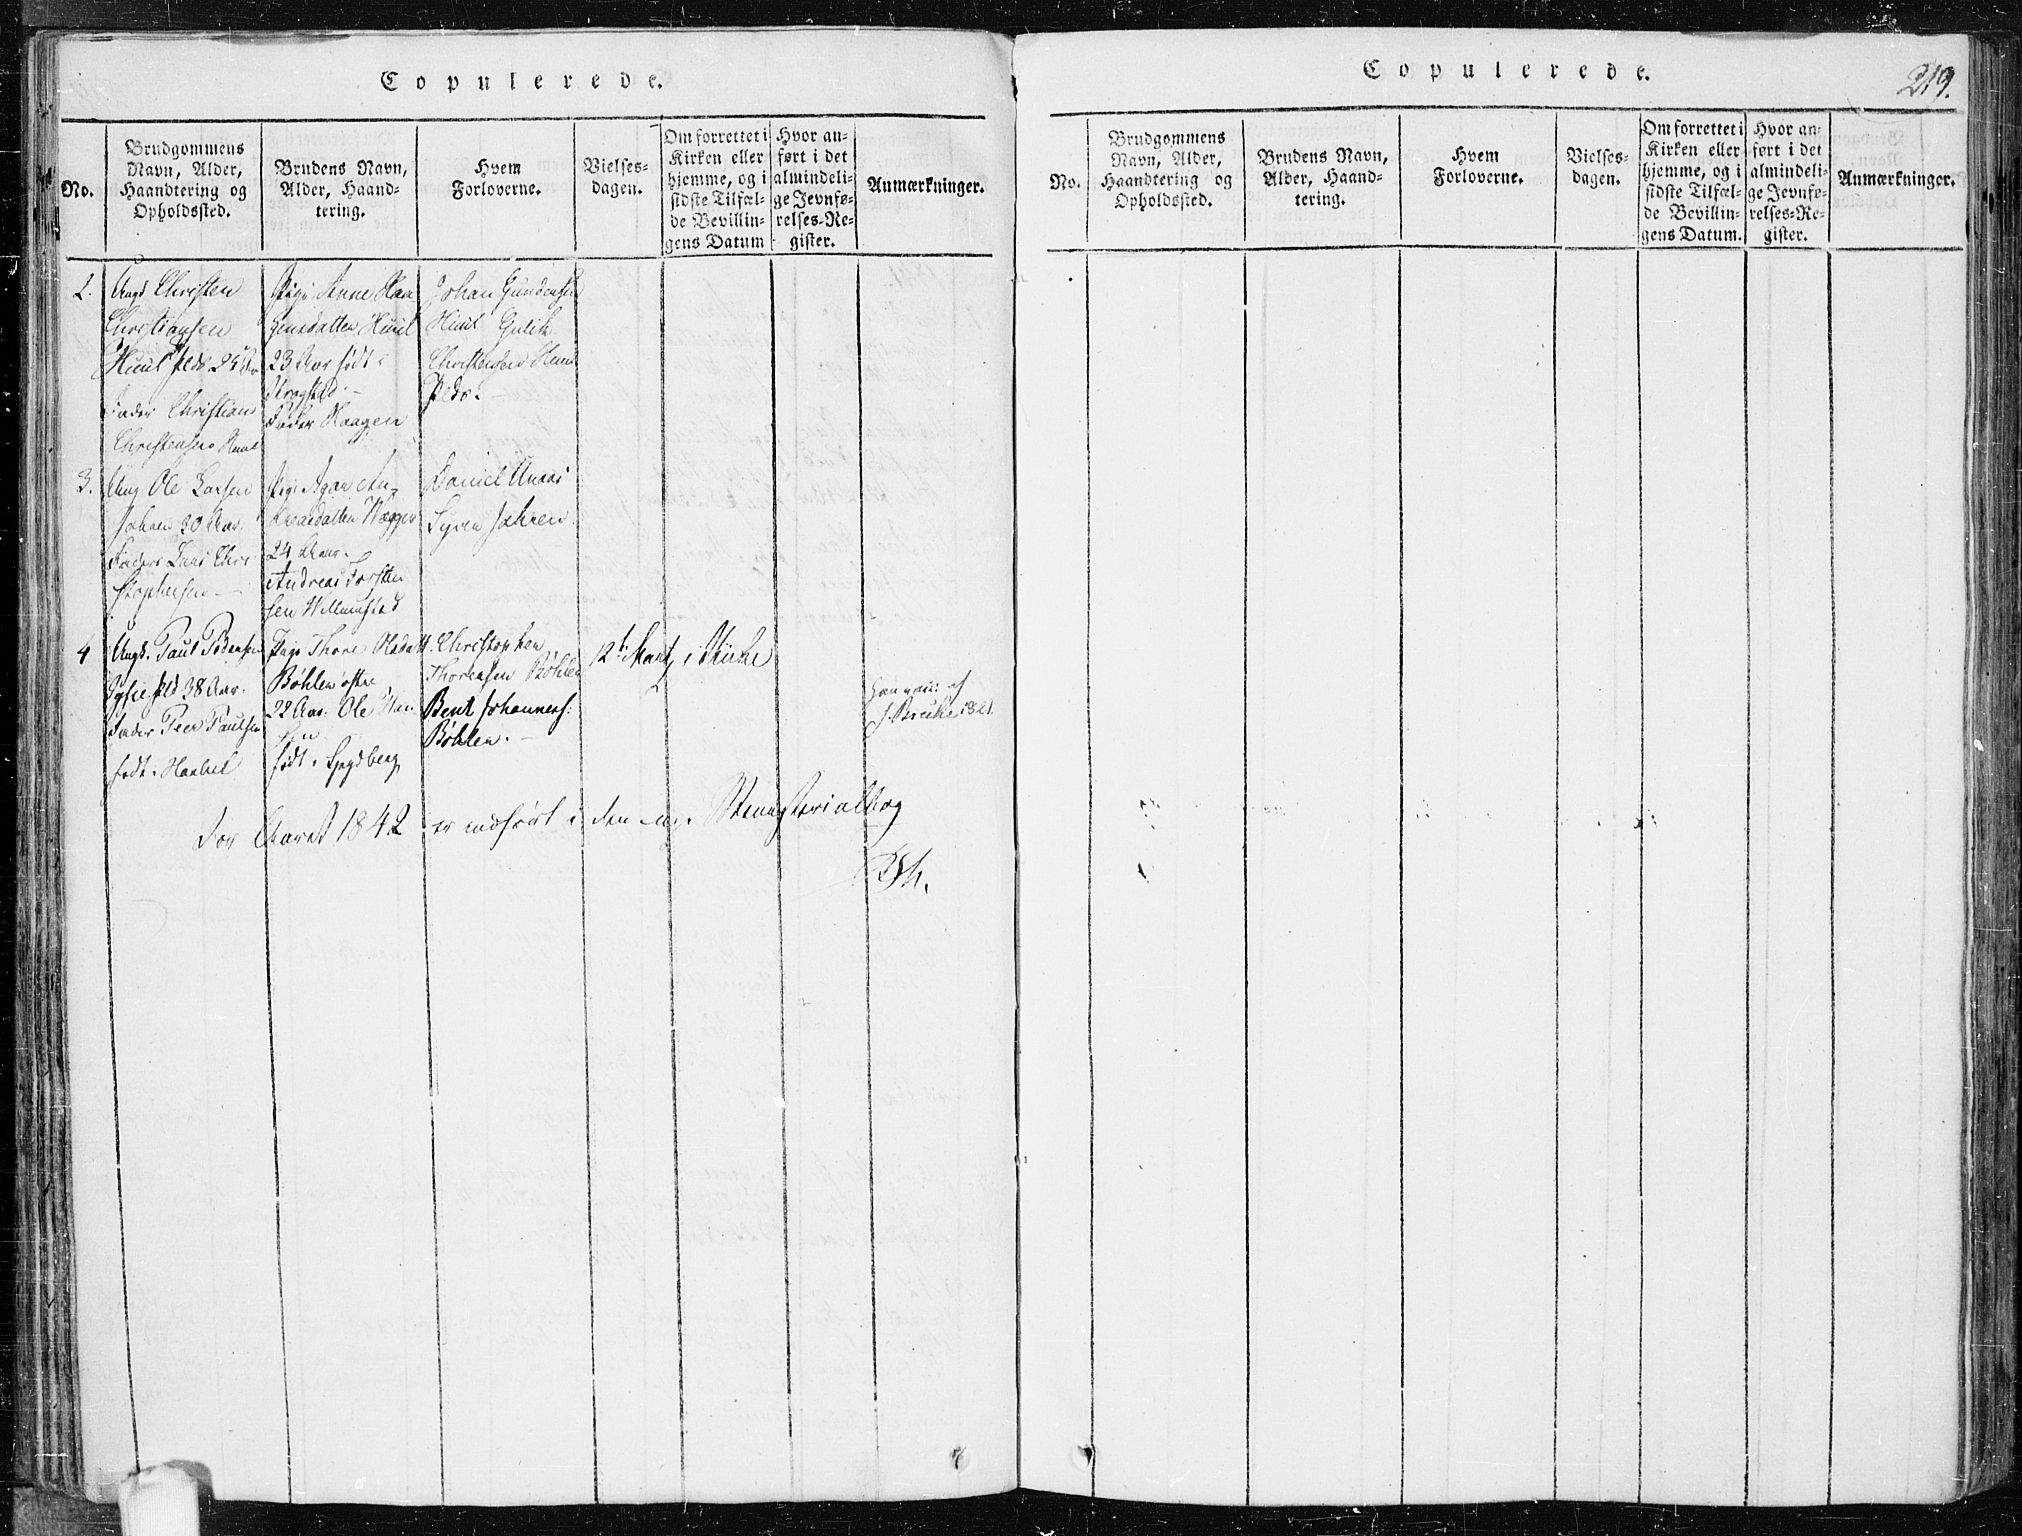 Copulerede.
No.
Brudgommens
Navn, Alder,
Haandtering og
Opholdssted.
Brudens Navn,
Alder, Haand-
tering.
Hvem
Forloverne.
Vielses-
dagen.
Om forrettet i
Kirken eller
hjemme, og i
sidste Tilfæl-
de Bevillin-
gens Datum
Hvor an-
ført i det
almindeli-
ge Jevnfø-
relses-Re-
gister.
Anmærkninger.
2.
Ungk Christen
Christiansen
Huul 24 Aar
Fader Christian
Christensen Huul
Pige Anne Haa
gensdatter Huul
23 Aar født i
Krogstad
Fader Haagen
Johan Gundersen
Huul
Christensen Huul
3.
Ung Ole Larsen
Jahren 30 Aar.
Fader Lars Chri
stophersen
Pige
dreasdatter
24 Aar.
Andreas Torsten
sen
Daniel
Jahren
4
Ungk. Paul Pedersen
38 Aar.
Fader Peer Paulsen
født i Haabel
Pige Thore Olsdatt
Bøhler østre
22 Aar. Ole Han
sen
født i Spydberg
Christopher
Thoresen Bøhler
Bent Johannes:
Bøhler.
12te Martz
i Kirke
Han vac: af
J. Breike 1821.
For Aaret 1842 er indført i den nye Ministerialbog
Copulerede.
219.
No.
Brudgommens
Navn, Alder,
Haandtering og
Opholdssted.
Brudens Navn,
Alder, Haand-
tering.
Hvem
Forloverne.
Vielses-
dagen.
Om forrettet i
Kirken eller
hjemme, og i
sidste Tilfæl-
de Bevillin-
gens Datum.
Hvor an-
ført i det
almindeli-
ge Jevnfø-
relses-Re-
gister.
Anmærkninger.